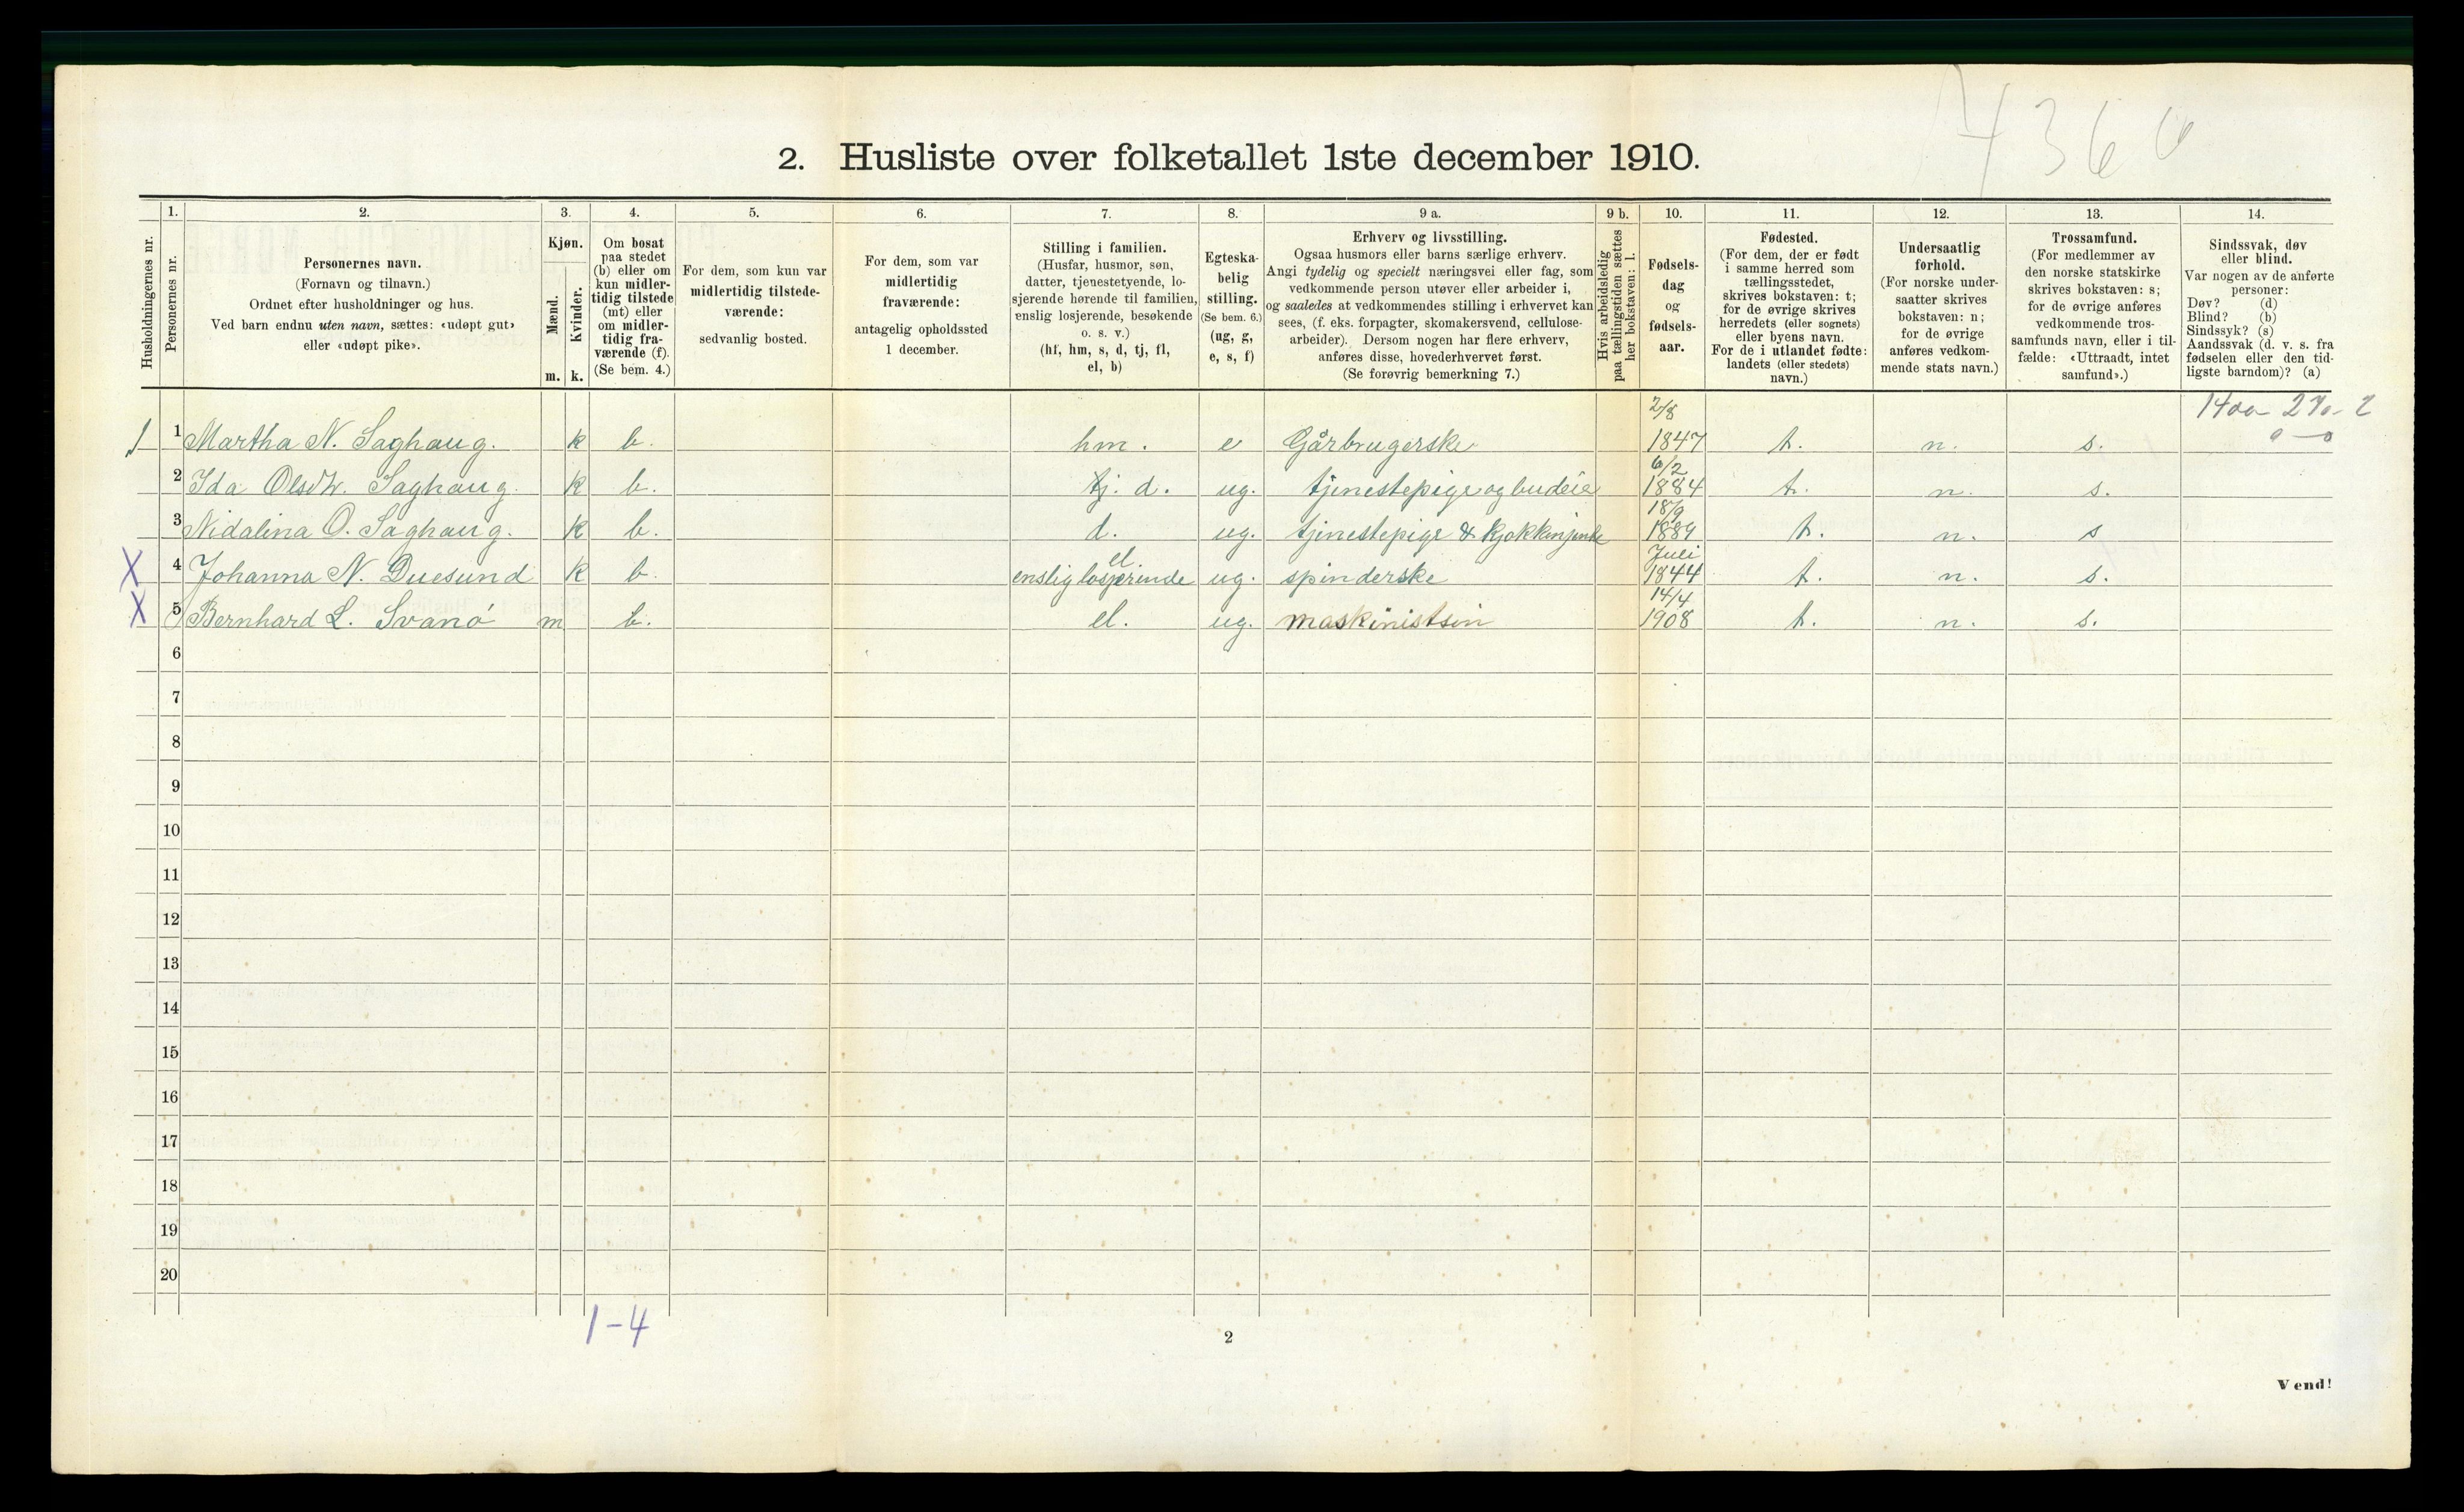 7366
2. Husliste over folketallet 1ste december 1910.
1. 2. 3. 4. 5. 6. 7. 8. 9 a. 9 b. 10. 11. 12. 13. 14.
Husholdningernes nr.
Personernes nr.
Personernes navn.
(Fornavn og tilnavn.)
Ordnet efter husholdninger og hus.
Ved barn endnu uten navn, sættes: «udøpt gut»
eller «udøpt pike».
Kjøn.
Mænd.
Kvinder.
m. k.
Om bosat
paa stedet
(b) eller om
kun midler-
tidig tilstede
(mt) eller
om midler-
tidig fra-
værende (f).
(Se bem. 4.)
For dem, som kun var
midlertidig tilstede-
værende:
sedvanlig bosted.
For dem, som var
midlertidig
fraværende:
antagelig opholdssted
1 december.
Stilling i familien.
(Husfar, husmor, søn,
datter, tjenestetyende, lo-
sjerende hørende til familien,
enslig losjerende, besøkende
o. s. v.)
(hf, hm, s, d, tj, fl,
el, b)
Egteska-
belig
stilling.
(Se bem. 6.)
(ug, g,
e, s, f)
Erhverv og livsstilling.
Ogsaa husmors eller barns særlige erhverv.
Angi tydelig og specielt næringsvei eller fag, som
vedkommende person utøver eller arbeider i,
og saaledes at vedkommendes stilling i erhvervet kan
sees, (f. eks. forpagter, skomakersvend, cellulose-
arbeider). Dersom nogen har flere erhverv,
anføres disse, hovederhvervet først.
(Se forøvrig bemerkning 7.)
Hvis arbeidsledig
paa tællingstiden sættes
her bokstaven: l.
Fødsels-
dag
og
fødsels-
aar.
Fødested.
(For dem, der er født
i samme herred som
tællingsstedet,
skrives bokstaven: t;
for de øvrige skrives
herredets (eller sognets)
eller byens navn.
For de i utlandet fødte:
landets (eller stedets)
navn.)
Undersaatlig
forhold.
(For norske under-
saatter skrives
bokstaven: n;
for de øvrige
anføres vedkom-
mende stats navn.)
Trossamfund.
(For medlemmer av
den norske statskirke
skrives bokstaven: s;
for de øvrige anføres
vedkommende tros-
samfunds navn, eller i til-
fælde: «Uttraadt, intet
samfund».)
Sindssvak, døv
eller blind.
Var nogen av de anførte
personer:
Døv? (d)
Blind? (b)
Sindssyk? (s)
Aandssvak (d. v. s. fra
fødselen eller den tid-
ligste barndom)? (a)
1 1 Martha N. Saghaug. k b. hm. e Gårbrugerske 2/8 1847 t. n. s.
2 Ida Olsdtr. Saghaug. k b. tj. d. ug. tjenestepige og budeie 6/2 1884 t. n. s.
3 Nidalina O. Saghaug. k b. d. ug. tjinestepige & kjøkkenjente 18/9 1889 t. n. s
X 4 Johanna N. Duesund k b. el enslig losjerende ug. spinderske Juli 1844 t. n. s.
X 5 Bernhard L. Svanö m b. el. ug. maskinistsin 14/4 1908 t. n. s.
6
7
8
9
10
11
12
13
14
15
16
17
18
19
20
1-4
2
Vend!